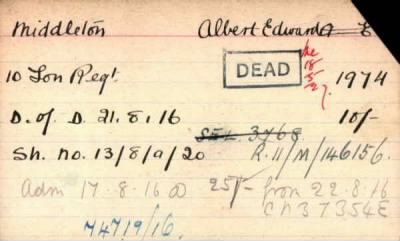 Middleton Albert Edward
10 Lon Regt. DEAD 1974
D. of D. 21.8.16 10/-
Sh. No. 13/8/9/20 SEL. 3768 R.11/M/146156.
Adm 17.8.16 25/- from 22.8.16
CN37354E
74719/16.